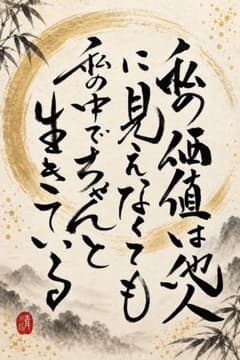 私の価値は他人
に見えなくても
私の中でちゃんと
生きている